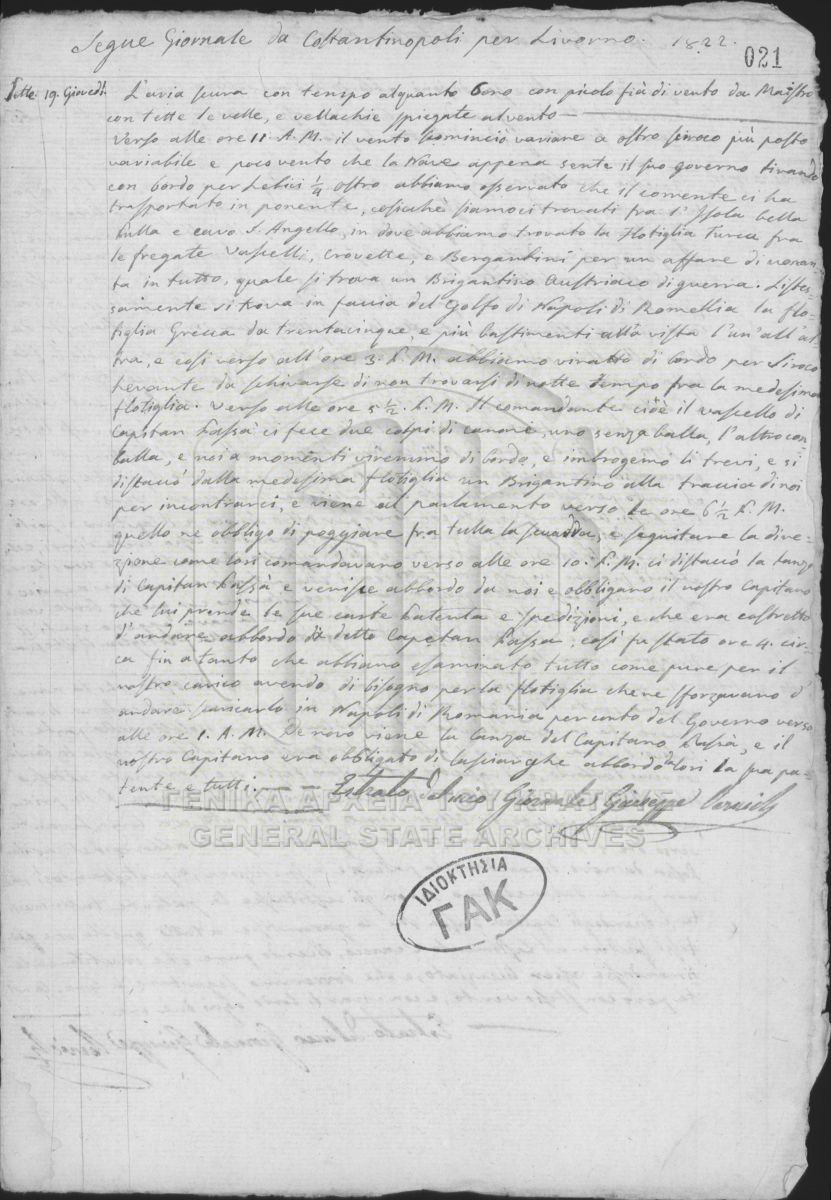 Segue Giornale da Costantinopoli per Livorno. 1822.
021
Sette. 19. Giovedì. L'aria scura con tempo alquanto bono con picolo fià di vento da Maistro
con tette le velle, e vellachie spiegate al vento
Verso alle ore 11. A.M. il vento cominciò variare a ostro siroco più posto
variabile e poco vento che la Nave appena sente il suo governo tirando
con bordo per Lebici ¼ ostro abbiamo osservato che il corrente ci ha
trasportato in ponente, cosichè siamoci trovati fra l'Isola bella
Pulla e cavo S. Angello, in dove abbiamo trovato la flotiglia Turca fra
le fregate Vascelli, Crovette, e Bergantini per un affare di
ta in tutto, quale si trova un Brigantino Austriaco di guerra. Listes-
samente si trova in faccia del Golfo di Napoli di Romellia la flo-
tiglia Greca da trentacinque, e più bastimenti alla vista l'un'all'al-
tra, e così verso all'ore 3. P.M. abbiamo viratto di bordo per Siroco
Levante da schivarse di non trovarsi di notte tempo fra la medesima
flotiglia. Verso alle ore 5½. P.M. Il comandante cioè il vascello di
Capitan Passà ci fece due colpi di canone, uno senza balla, l'altro con
balla, e noi a momenti viremmo di bordo, e imbrogemo li trevi, e si
distacò dalla medesima flotiglia un Brigantino alla traccia di noi
per incontrarci, e viene al parlamento verso le ore 6½ P.M.
quello ne obbligo di poggiare fra tutta la scuadra, e seguitare la dire-
zione come lori comandavano verso alle ore 10. P.M. ci distacò la lanza
di Capitan Passà e venisse abbordo da noi e obbligano il nostro Capitano
che lui prende le sue carte Patenta e spedizioni, e che era costretto
d'andare abbordo di detto Capetan Passa, così fu stato ore 4. cir-
ca fin a tanto che abbiano esaminato tutto come pure per il
nostro carico avendo di bisogno per la flotiglia che ne sforzavano d'
andare scaricarlo in Napoli di Romania per conto del Governo verso
alle ore 1. A.M. De novo viene la lanza del Capitano Passà, e il
nostro Capitano era obbligato di lasciarghe abbordo di lori la sua pa-
tente e tutti. Estrato Giornale Giuseppe
ΓΕΝΙΚΑ ΑΡΧΕΙΑ ΤΟΥ ΚΡΑΤΟΥΣ
GENERAL STATE ARCHIVES
ΙΔΙΟΚΤΗΣΙΑ
ΓΑΚ